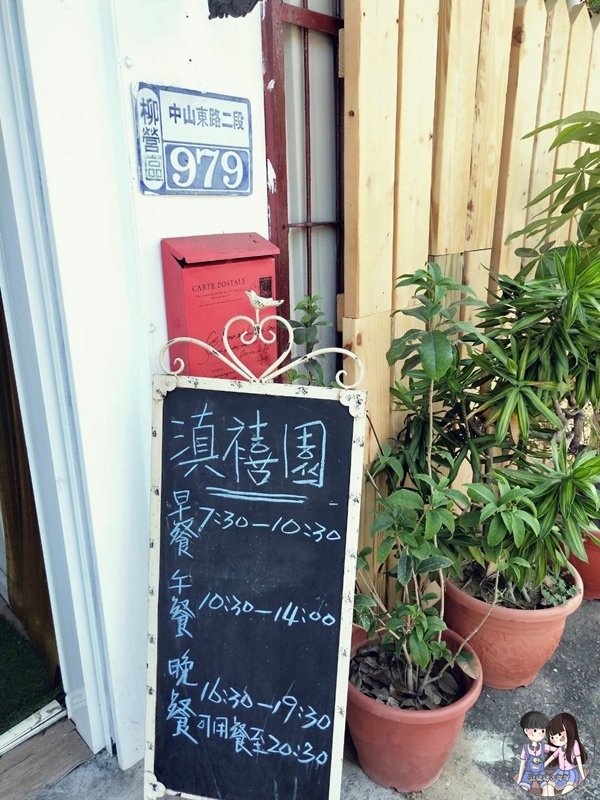 柳營區
中山東路二段
979
CARTE POSTALE
滇禧園
早餐 7:30-10:30
午餐 10:30-14:00
晚餐 16:30-19:30
可用餐至20:30